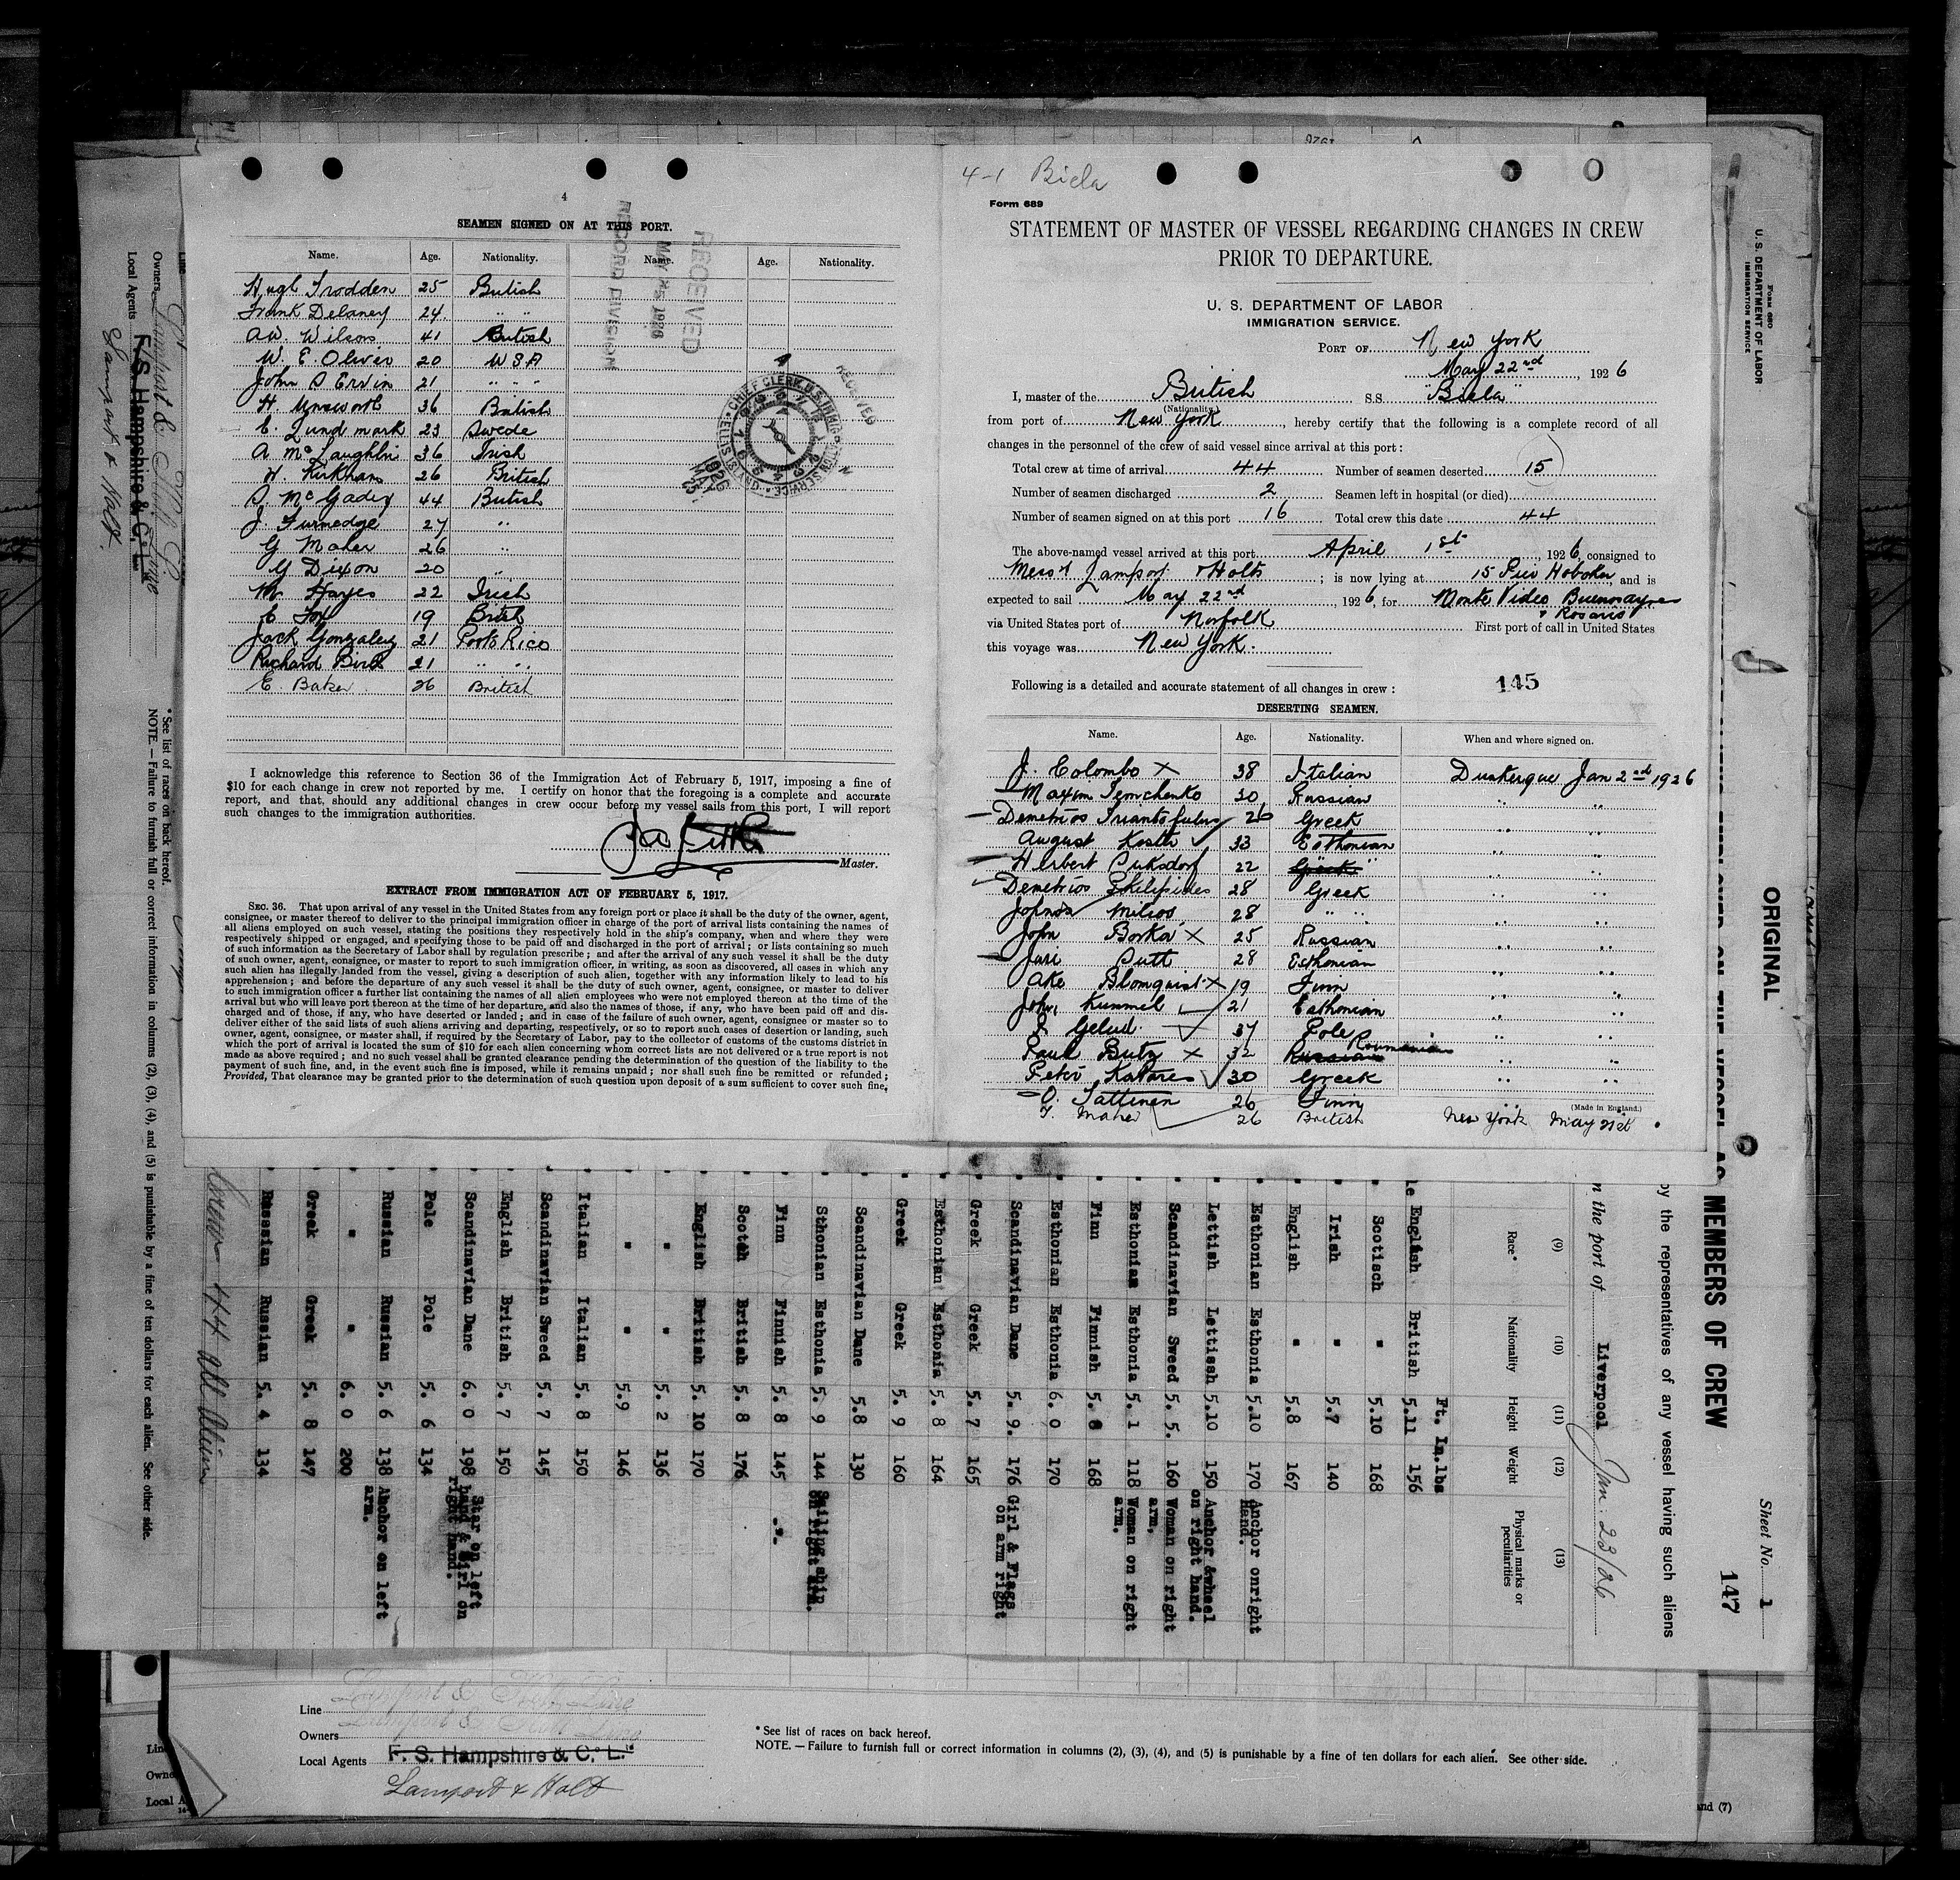 4
SEAMEN SIGNED ON AT THIS PORT.
Name. Age. Nationality. Name. Age. Nationality.
Hugh Trodden 25 British
Frank Delaney 24 " "
A.W. Wilson 41 British
W. E. Oliver 20 USA
John S Ervin 21 " " "
H. Unsworth 36 British
E. Lundmark 23 Swede
A McLaughlin 36 Irish
H. Kirkham 26 British
P. McGadey 44 British
J. Furnedge 27 "
G Maher 26 "
G Dixon 20 "
M Hayes 22 Irish
E Fox 19 British
Jack Gonzalez 21 Porto Rico
Richard Bird 21 " "
E. Baker 26 British
RECEIVED
MAY 25 1926
RECORD DIVISION
RECEIVED
CHIEF CLERK, U.S. IMMIGRATION SERVICE
ELLIS IS
1926 MAY 25
I acknowledge this reference to Section 36 of the Immigration Act of February 5, 1917, imposing a fine of
$10 for each change in crew not reported by me. I certify on honor that the foregoing is a complete and accurate
report, and that, should any additional changes in crew occur before my vessel sails from this port, I will report
such changes to the immigration authorities.
Master.
EXTRACT FROM IMMIGRATION ACT OF FEBRUARY 5, 1917.
SEC. 36. That upon arrival of any vessel in the United States from any foreign port or place it shall be the duty of the owner, agent,
consignee, or master thereof to deliver to the principal immigration officer in charge of the port of arrival lists containing the names of
all aliens employed on such vessel, stating the positions they respectively hold in the ship's company, when and where they were
respectively shipped or engaged, and specifying those to be paid off and discharged in the port of arrival; or lists containing so much
of such information as the Secretary of Labor shall by regulation prescribe; and after the arrival of any such vessel it shall be the duty
of such owner, agent, consignee, or master to report to such immigration officer, in writing, as soon as discovered, all cases in which any
such alien has illegally landed from the vessel, giving a description of such alien, together with any information likely to lead to his
apprehension; and before the departure of any such vessel it shall be the duty of such owner, agent, consignee, or master to deliver
to such immigration officer a further list containing the names of all alien employees who were not employed thereon at the time of the
arrival but who will leave port thereon at the time of her departure, and also the names of those, if any, who have been paid off and dis-
charged and of those, if any, who have deserted or landed; and in case of the failure of such owner, agent, consignee or master so to
deliver either of the said lists of such aliens arriving and departing, respectively, or so to report such cases of desertion or landing, such
owner, agent, consignee, or master shall, if required by the Secretary of Labor, pay to the collector of customs of the customs district in
which the port of arrival is located the sum of $10 for each alien concerning whom correct lists are not delivered or a true report is not
made as above required; and no such vessel shall be granted clearance pending the determination of the question of the liability to the
payment of such fine, and, in the event such fine is imposed, while it remains unpaid; nor shall such fine be remitted or refunded;
Provided, That clearance may be granted prior to the determination of such question upon deposit of a sum sufficient to cover such fine,
4-1 Biela
Form 689
STATEMENT OF MASTER OF VESSEL REGARDING CHANGES IN CREW
PRIOR TO DEPARTURE.
U. S. DEPARTMENT OF LABOR
IMMIGRATION SERVICE.
PORT OF New York
May 22nd, 1926
I, master of the British S.S. "Biela"
(Nationality.)
from port of New York, hereby certify that the following is a complete record of all
changes in the personnel of the crew of said vessel since arrival at this port:
Total crew at time of arrival 44 Number of seamen deserted 15
Number of seamen discharged 2 Seamen left in hospital (or died)
Number of seamen signed on at this port 16 Total crew this date 44
The above-named vessel arrived at this port April 1st, 1926, consigned to
Messrs Lamport & Holts; is now lying at 15 Pier Hoboken, and is
expected to sail May 22nd, 1926, for Monte Video Buenosayres
& Rosario
via United States port of Norfolk First port of call in United States
this voyage was New York.
Following is a detailed and accurate statement of all changes in crew: 145
DESERTING SEAMEN.
Name. Age. Nationality. When and where signed on.
J. Colombo X 38 Italian Dunkerque Jan 2nd 1926
Maxim Semchenko 30 Russian " "
Demetrios 26 Greek " "
August Koster 33 Esthonian " "
Herbert Puksdorf 22 " " "
Demetrios Philipides 28 Greek " "
Milios 28 " " " "
John Borka X 25 Russian " "
Juri Putt 28 Esthonian " "
Ake Blomquist X 19 Finn " "
John, Kummel 21 Esthonian " "
Gelud 37 Pole " "
Paul Butz X 32 Russian Roumanian " "
Petro Katares 30 Greek " "
O. Sattinen 26 Finn "
(Made in England.)
Maher 26 British New York May 21st
Form 680
U. S. DEPARTMENT OF LABOR
IMMIGRATION SERVICE
ORIGINAL
Sheet No. 1
147
MEMBERS OF CREW
by the representatives of any vessel having such aliens
n the port of Liverpool Jan. 23/26
(9) (10) (11) (12) (13)
Race* Nationality Height Weight Physical marks or peculiarities
Ft. In. lbs
le English British 5.11 156
" Scotisch " 5.10 168
" Irish " 5.7 140
" English " 5.8 167
" Esthonian Esthonia 5.10 170 Anchor onright hand.
" Lettish Lettissh 5.10 150 Anchor &wheel on right hand.
" Scandinavian Sweed 5. 5. 160 Woman on right arm.
" Esthonian Esthonia 5. 1 118 Woman on right arm.
" Finn Finnish 5. 8 168
" Esthonian Esthonia 6. 0 170
" Scandinavian Dane 5. 9. 176 Girl & Flags on arm right
" Greek Greek 5. 7 165
" Esthonian Esthonia 5. 8 164
" Greek Greek 5. 9 160
" Scandinavian Dane 5.8 130
" Sthonian Esthonia 5. 9 144 Sailing ship on right arm.
" Finn Finnish 5. 8 145 -"-
" Scotch British 5. 8 176
" English British 5. 10 170
" " " 5. 2 136
" " " 5.9 146
" Italian Italian 5. 8 150
" Scandinavian Sweed 5. 7 145
" English British 5. 7 150
" Scandinavian Dane 6. 0 198 Star on left hand & Girl on right hand.
" Pole Pole 5. 6 134
" Russian Russian 5. 6 138 Abchor on left arm.
" " " 6. 0 200
" Greek Greek 5. 8 147
" Russian Russian 5. 4 134
Crew 44 all Aliens
Owners Lamport & Holt Line
Local Agents F. S. Hampshire & C. L.
Lamport & Holt.
* See list of races on back hereof.
NOTE.—Failure to furnish full or correct information in columns (2), (3), (4), and (5) is punishable by a fine of ten dollars for each alien. See other side.
Line Lamport & Holt Line
Owners Lamport & Holt Line
Local Agents F. S. Hampshire & C. L.
Lamport & Holt
* See list of races on back hereof.
NOTE.—Failure to furnish full or correct information in columns (2), (3), (4), and (5) is punishable by a fine of ten dollars for each alien. See other side.
Lin
Owne
Local A
and (7)